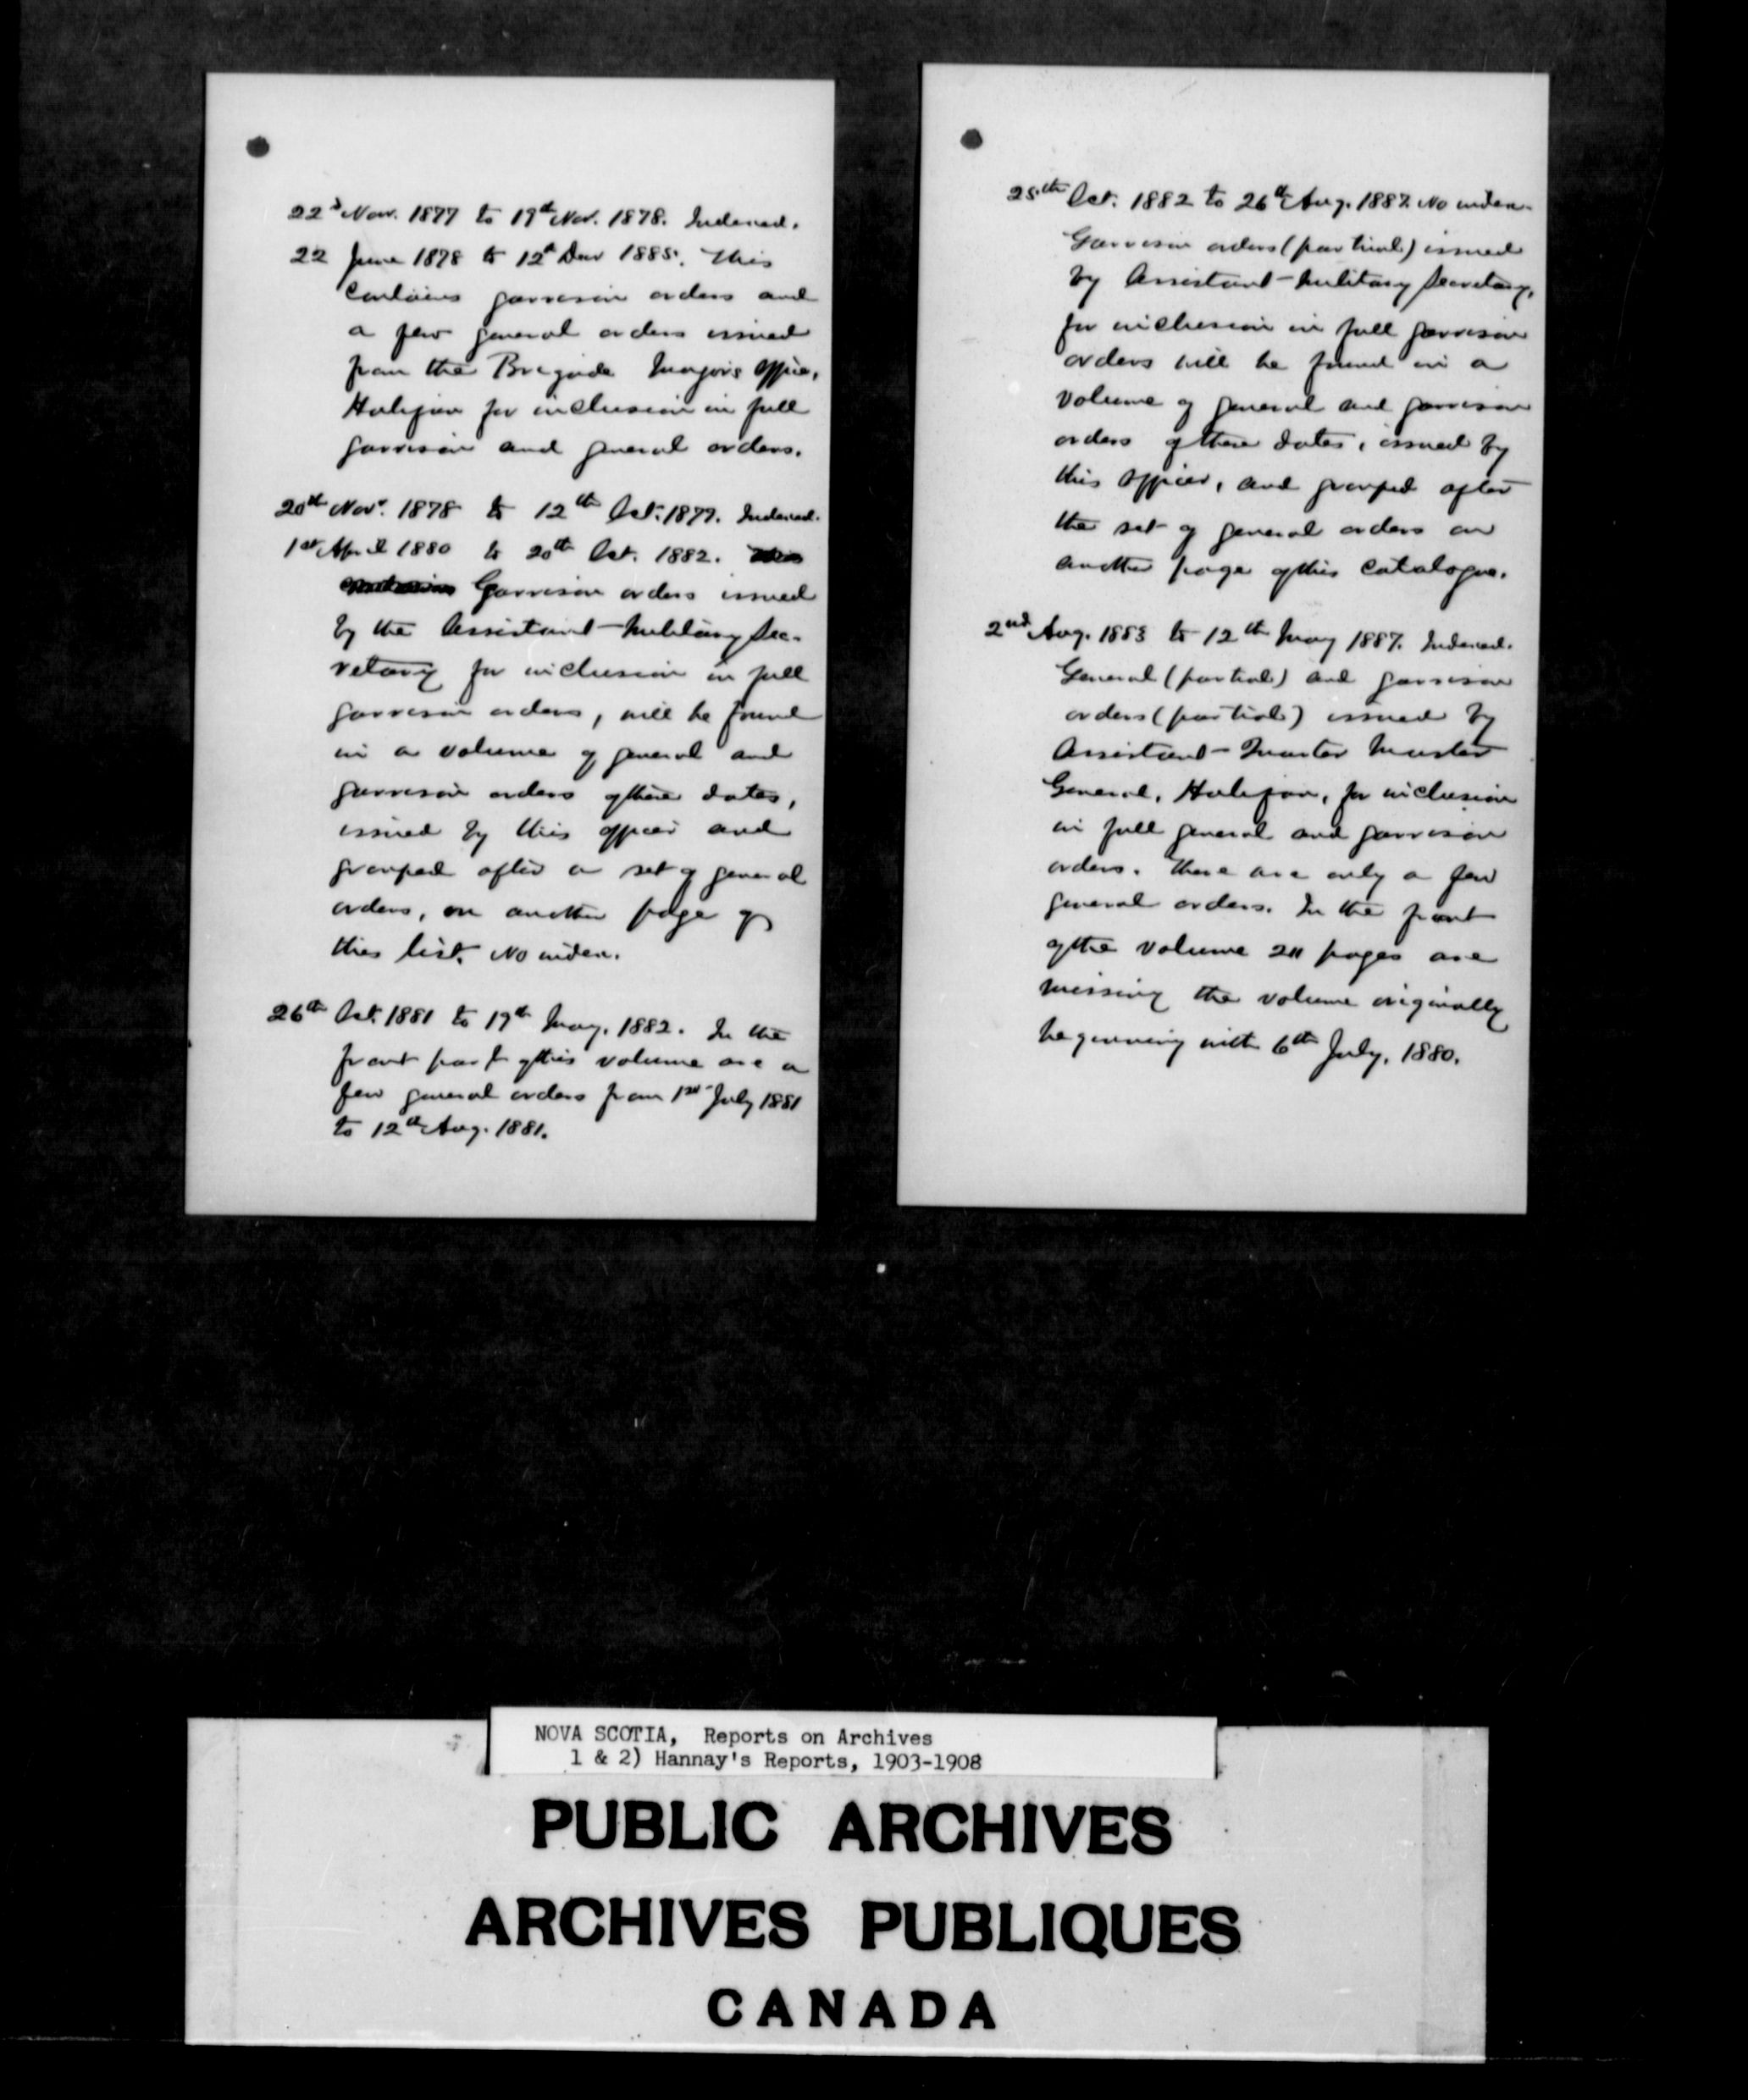 22d Nov. 1877 to 19th Nov. 1878. Indexed.
22 June 1878 to 12th Decr 1885. This
contains garrison orders and
a few general orders issued
from the Brigade Majors office,
Halifax for inclusion in full
garrison and general orders.
20th Novr. 1878 to 12th Oct. 1879. Indexed.
1st April 1880 to 20th Oct. 1882. This
contains Garrison orders issued
by the Assistant-Military Sec-
retary for inclusion in full
garrison orders, will be found
in a volume of general and
garrison orders of these dates,
issued by this officer and
grouped after a set of general
orders, on another page of
this list. No index.
26th Oct. 1881 to 19th May, 1882. In the
front part of this volume are a
few general orders from 1st July 1881
to 12th Aug. 1881.
25th Oct. 1882 to 26th Aug. 1887. No index.
Garrison orders (partial) issued
by Assistant-Military Secretary,
for inclusion in full garrison
orders will be found in a
volume of general and garrison
orders of these dates, issued by
this officer, and grouped after
the set of general orders on
another page of this catalogue.
2nd Aug. 1883 to 12th May 1887. Indexed.
General (partial) and garrison
orders (partial) issued by
Assistant-Quarter Master
General, Halifax, for inclusion
in full general and garrison
orders. There are only a few
general orders. In the front
of the volume 211 pages are
missing the volume originally
beginning with 6th July, 1880.
NOVA SCOTIA, Reports on Archives
1 & 2) Hannay's Reports, 1903-1908
PUBLIC ARCHIVES
ARCHIVES PUBLIQUES
CANADA